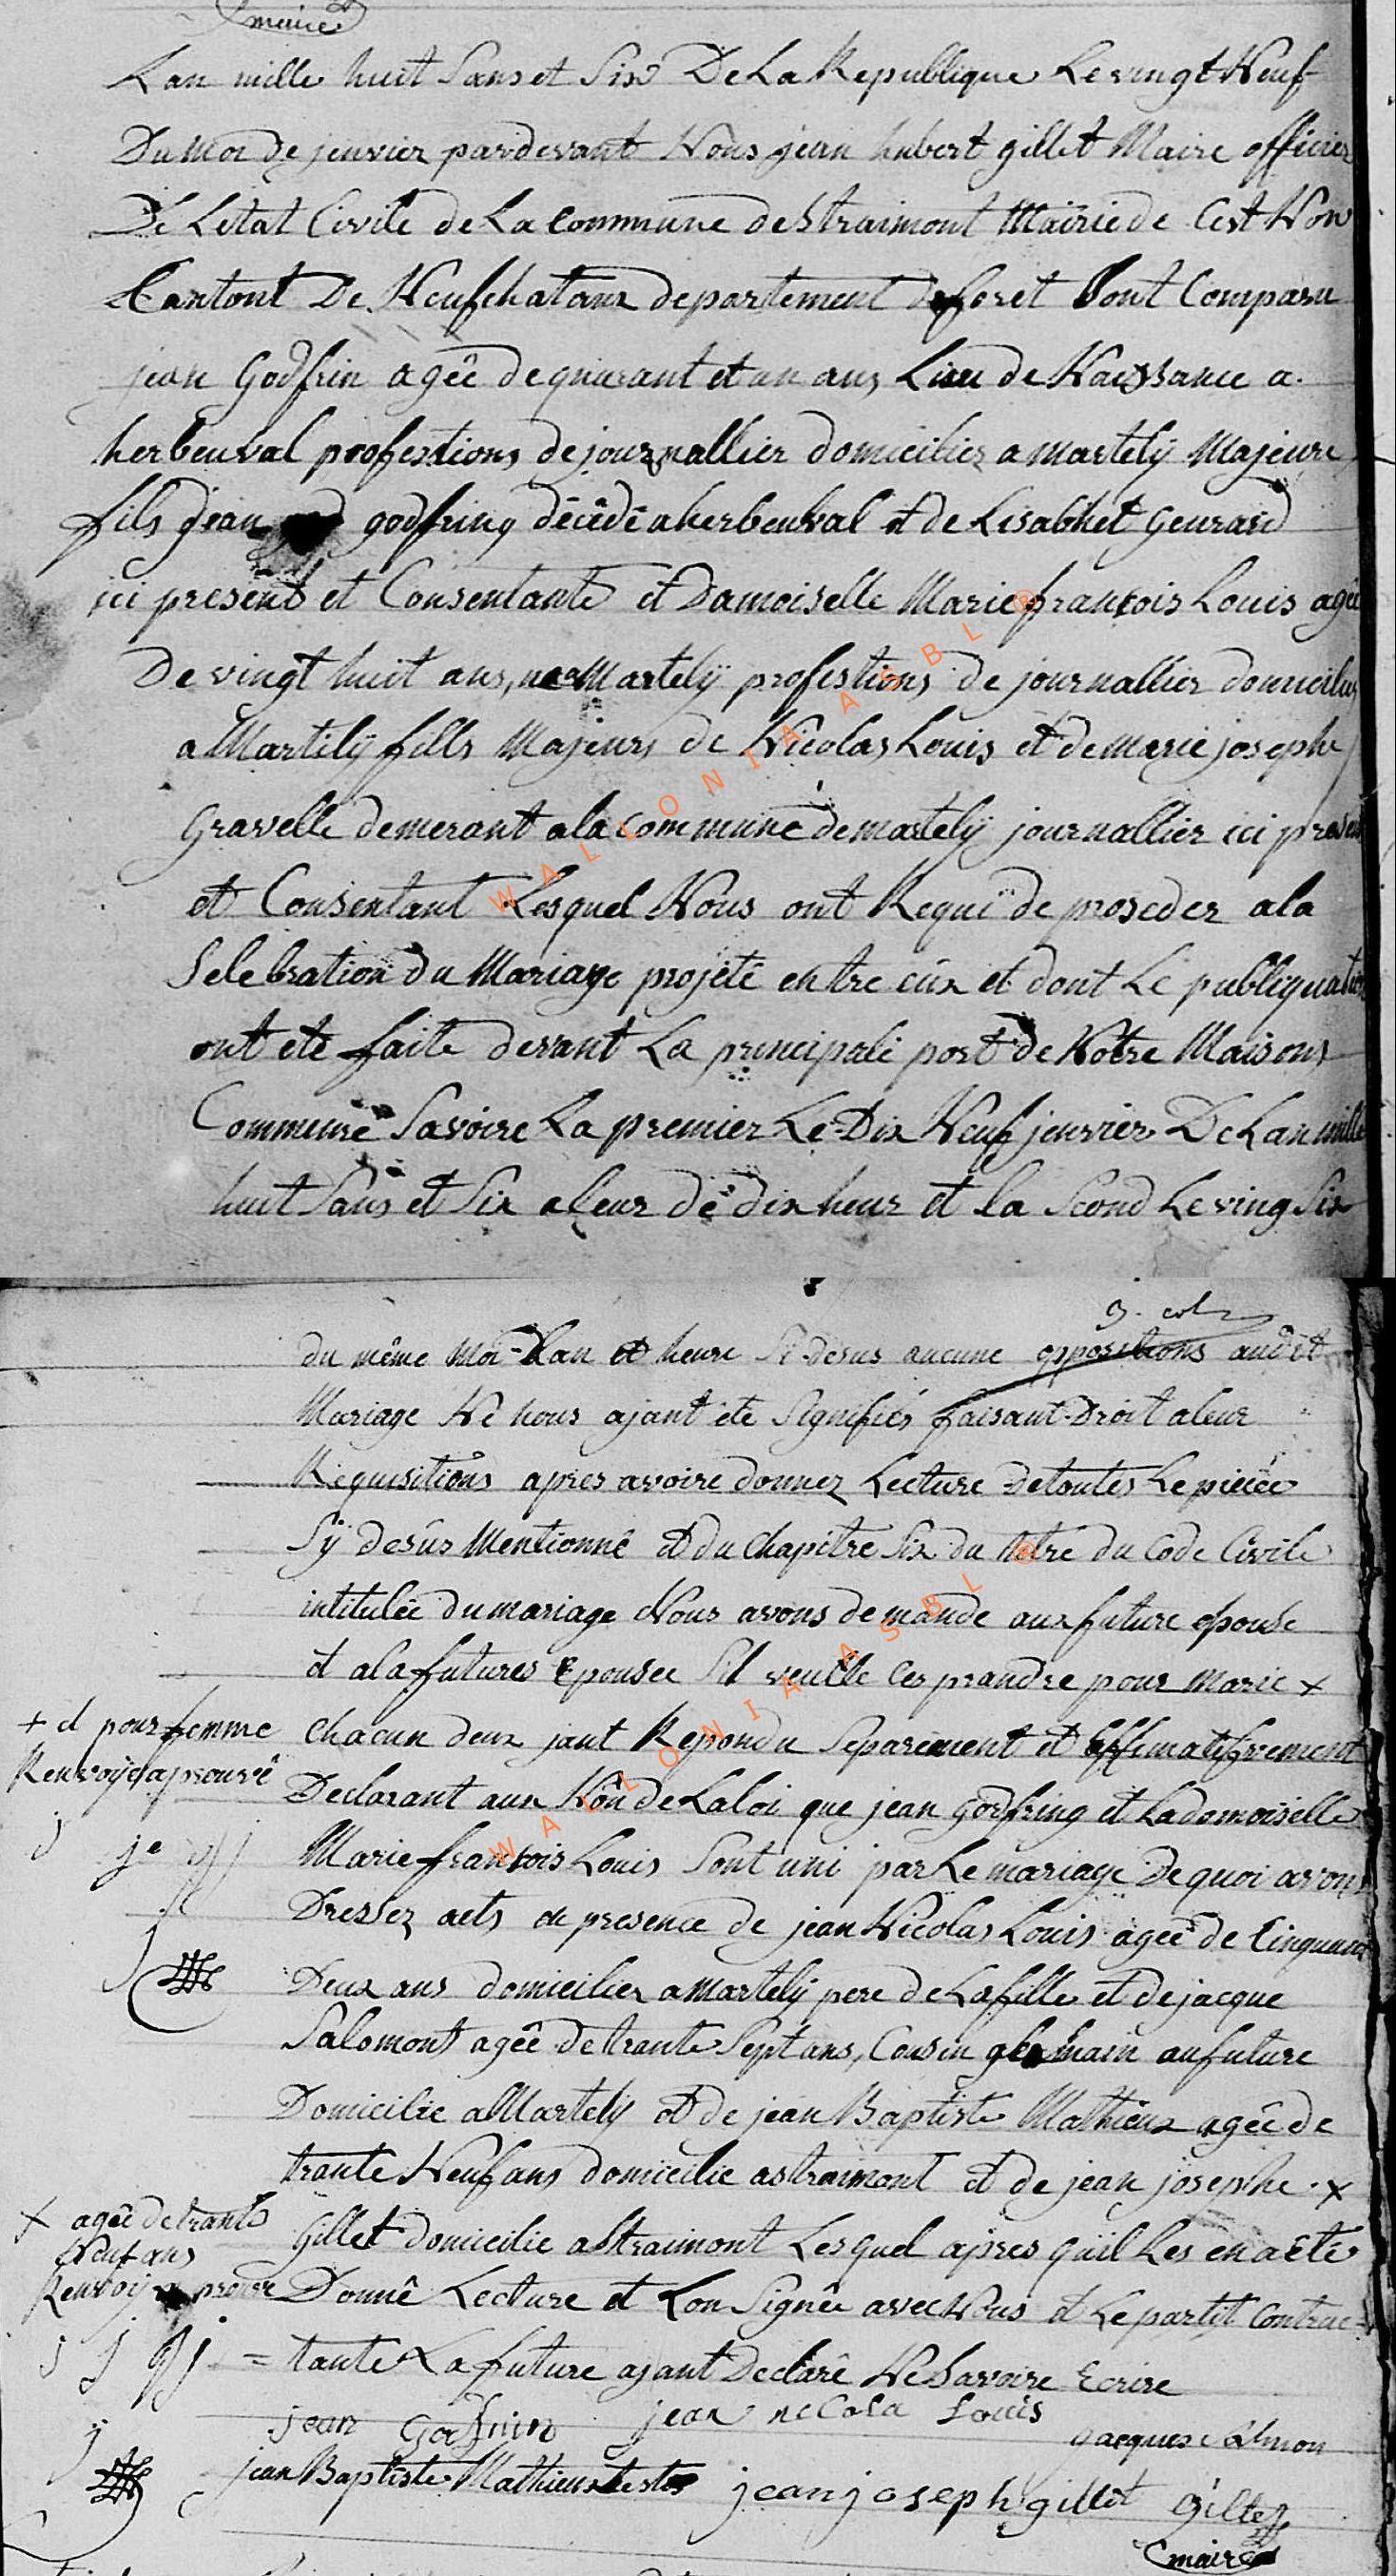 maire
Lan mille huit Sans et Six De La Republique Le vingt Neuf
Du moi de jenvier pardevant Nous jean hubert gillet Maire officier
De Letat Civile de La Commune de Straimont Mairie de Cest Non
Cantont De Neufchataux departement de foret Sont Comparu
jean Godfrin agée de quarant et un ans Lieu de Naissance a
herbeuval profestions de journallier domiciliez a Martelÿ Majeure
fils jean godfring décédé a herbeuval et de Lisabhet Geurard
ici present et Consentante et Damoiselle Marie francois Louis agée
De vingt huit ans, ne a Martelÿ profestions de journallier domicilier
a Martilÿ fills Majeurs de Nicolas Louis et de marie josephe
Gravelle demerant a la Commune de martelÿ journallier ici present
et Consentant Lesquel Nous ont Requi de proseder a la
Selebration du Mariage projeté entre eux et dont Le publiquation
ont eté faite devant La principale port de Notre Maisons
Commune Savoire La premier Le Dix Neuf jenvier De Lan mille
huit Sans et Six a leur de dix heur et la Second Le ving Six
du même Moi Lan et heure Si desus aucune oppositions audit
Mariage Ne nous ajant été Signifiés faisant Droit a leur
Requisitions apres avoire donnez Lecture de toutes Le pieicé
Sÿ desus Mentionné et du Chapitre Six du titre du Code Civile
intitulée du mariage Nous avons demande aux future epouse
et a la futures Epousee Sil veulle les prandre pour Marie x
+ et pour femme
Renvoÿe aprouvé
Chacun deux jant Repondu Separement et affirmatifvement
Declarant aux Non de La loi que jean Godfring et La domoiselle
Marie francois Louis Sont uni par Le mariage De quoi avons
Dressez acts en presence de jean Nicolas Louis agée de Cinquant
Deux ans domiciliez a Martelÿ pere de La fille et de jacque
Salomont agée de trante Sept ans, Cousin germain au future
Domicilie a Martelÿ et de jean Baptiste Mathieux agée de
trante Neuf ans domicilie a straimont et de jean josephe x
x agée de trante
Neuf ans
Renvoÿ a prouve
Gillet domicilie a Straimont Lesquel apres quil Les en a été
Donné Lecture et Lon Signée avec Nous et Le partit Contrac=
= tante La future ajant Declaré Ne Savoire Ecrire
jean Godfrin jean nicola Louis
jacques salmon
jean Baptiste Mathieux testes jean joseph gillet Gillet
maire
WALLONIA ASBL ®
WALLONIA ASBL ®